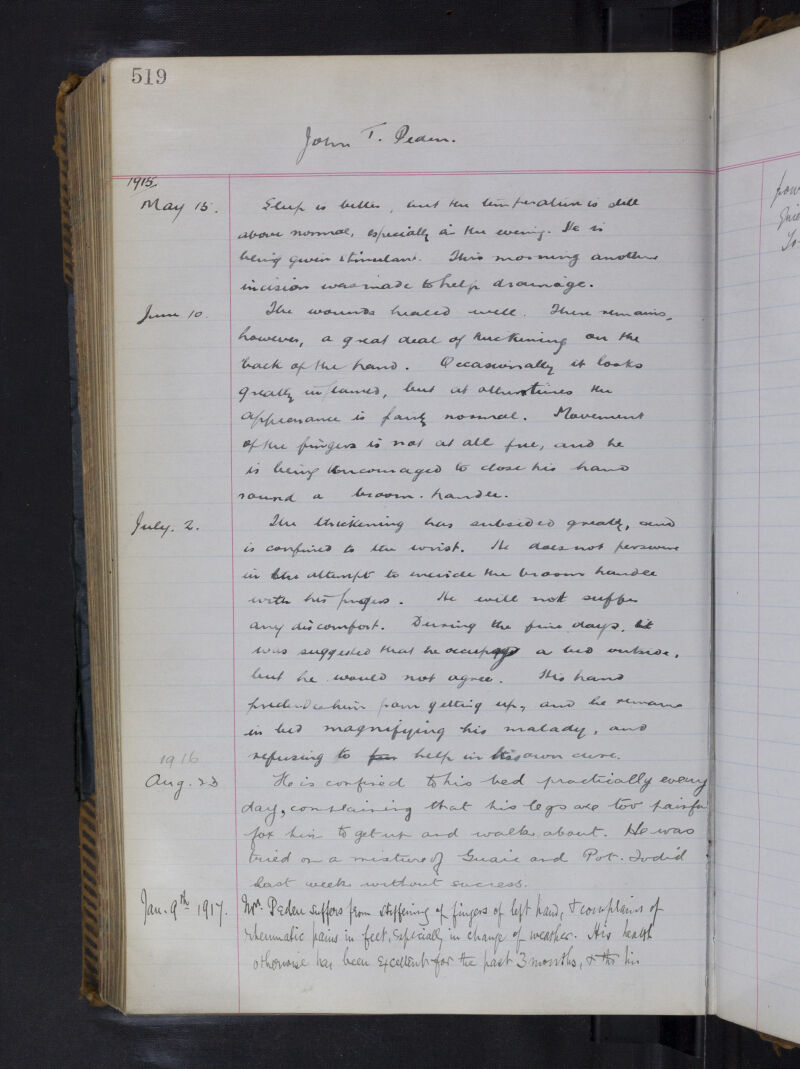 519
John T. Peden.
1915.
May 15. Sleep is better, but the temperature is still
above normal, especially in the evening. He is
being given stimulant. This morning another
incision was made to help drainage.
June 10. The wounds healed well. There remains,
however, a great deal of thickening on the
back of the hand. Occasionally it looks
greatly inflamed, but at other times the
appearance is fairly normal. Movement
of the fingers is not at all free, and he
is being encouraged to close his hand
round a broom-handle.
July. 2. The thickening has subsided greatly, and
is confined to the wrist. He does not persevere
in the attempt to encircle the broom handle
with his fingers. He will not suffer
any discomfort. During the fine days, it
was suggested that he occupy a bed outside,
but he would not agree. His hand
him from getting up, and he remains
in bed magnifying his malady, and
refusing to help in his own cure.
1916
Aug. 28 He is confined to his bed practically every
day, complaining that his legs are too painful
for him to get up and walk about. He was
tried on a mixture of Guaic and Pot. Iodid
last week without success.
Jan. 9th 1917. Mr. Peden suffers from stiffening of fingers of left hand, & complains of
rheumatic pains in feet, especially in change of weather. His health
otherwise has been excellent for the past 3 months, & tho his